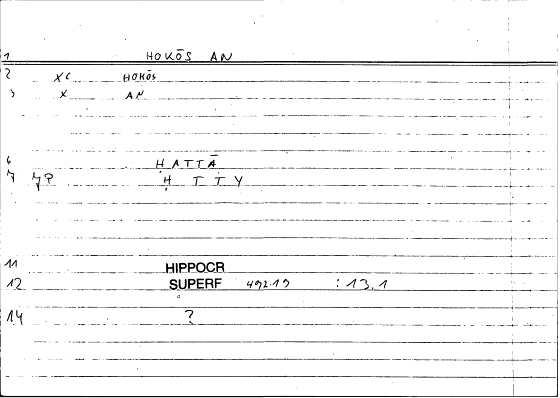 1 HOKŌS AN
2 XC HOKŌS
3 X AN
6 ḤATTĀ
7 7P Ḥ T Ṭ Y
11 HIPPOCR
12 SUPERF 492.19 : 13.1
14 ?